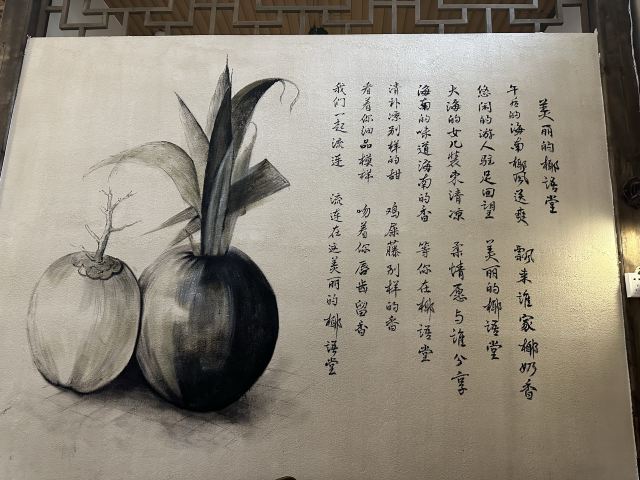 美丽的椰语堂
午后的海南椰风送爽 飘来谁家椰奶香
悠闲的游人驻足回望 美丽的椰语堂
大海的女儿装束清凉 柔情愿与谁分享
海南的味道海南的香 等你在椰语堂
清补凉别样的甜 鸡屎藤别样的香
看着你细品模样 吻着你唇齿留香
我们一起流连 流连在这美丽的椰语堂